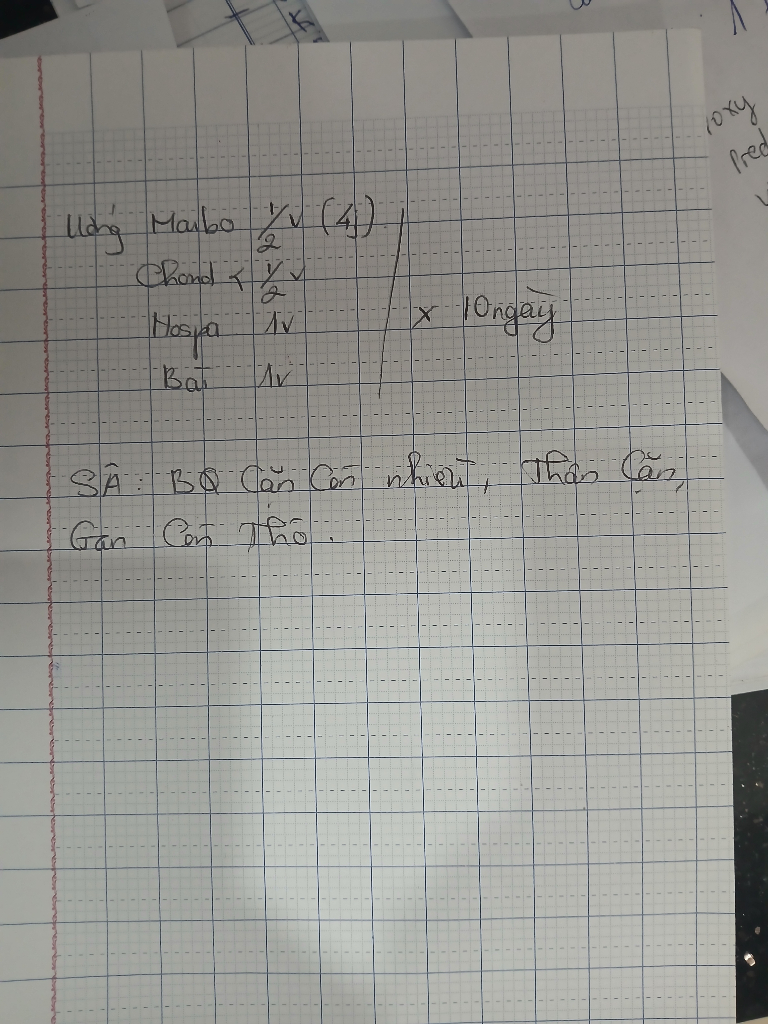 Uống Maibo 1/2v (4j)
Chond < 1/2v
Hospa 1v
Bai 1v
x 10ngày
SÂ: BQ Cặn Còn nhiều, Thận Cặn,
Gan Còn Thô.
10xy
pred